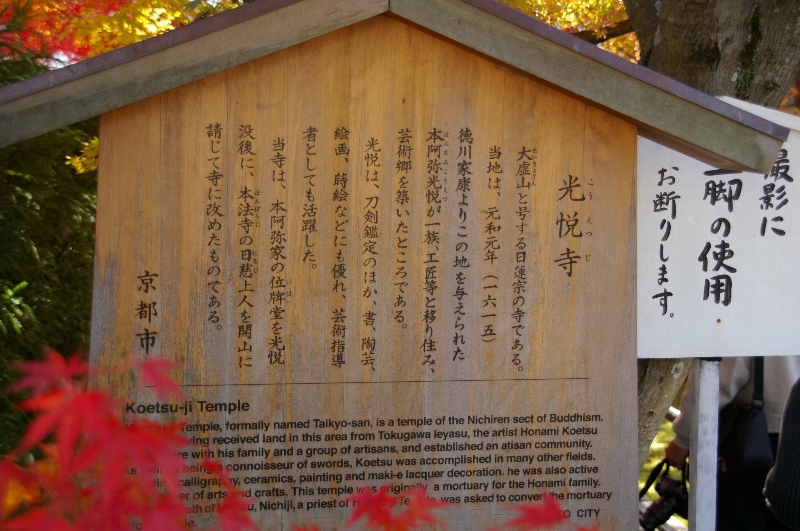 光悦寺
こうえつじ
大虚山と号する日蓮宗の寺である。
たいきょさん
当地は、元和元年（一六一五）
徳川家康よりこの地を与えられた
本阿弥光悦が一族、工匠等と移り住み、
ほんあみこうえつ
芸術郷を築いたところである。
光悦は、刀剣鑑定のほか、書、陶芸、
絵画、蒔絵などにも優れ、芸術指導
者としても活躍した。
当寺は、本阿弥家の位牌堂を光悦
いはい
没後に、本法寺の日慈上人を開山に
ほんぽうじ
にちじ
請じて寺に改めたものである。
京都市
Koetsu-ji Temple
Temple, formally named Taikyo-san, is a temple of the Nichiren sect of Buddhism.
having received land in this area from Tokugawa Ieyasu, the artist Honami Koetsu
with his family and a group of artisans, and established an atisan community.
being a connoisseur of swords, Koetsu was accomplished in many other fields.
calligraphy, ceramics, painting and maki-e lacquer decoration. he was also active
of arts and crafts. This temple was originally a mortuary for the Honami family.
of Nichiji, a priest of Temple, was asked to convert the mortuary
CITY
撮影に
脚の使用
お断りします。